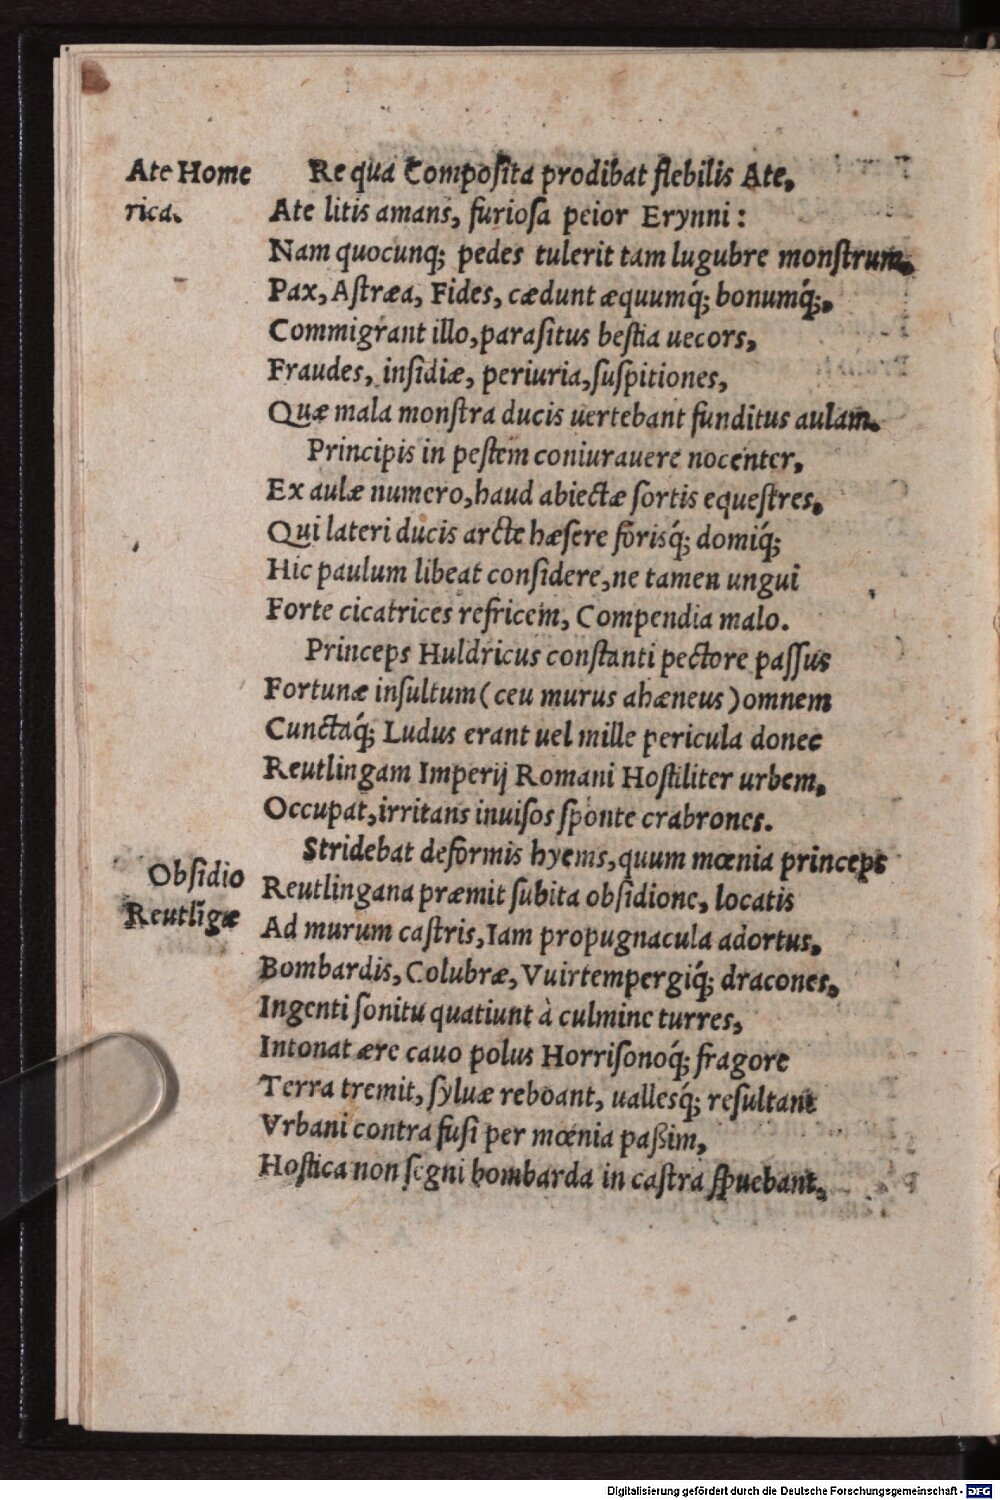 Ate Home
rica.
Re qua Composita prodibat flebilis Ate,
Ate litis amans, furiosa peior Erynni:
Nam quocunq; pedes tulerit tam lugubre monstrum,
Pax, Astræa, Fides, cædunt æquumq́; bonumq́;,
Commigrant illo, parasitus bestia uecors,
Fraudes, insidiæ, periuria, suspitiones,
Quæ mala monstra ducis uertebant funditus aulam.
Principis in pestem coniurauere nocenter,
Ex aulæ numero, haud abiectæ sortis equestres,
Qui lateri ducis arcte hæsere forisq́; domiq́;
Hic paulum libeat considere, ne tamen ungui
Forte cicatrices refricem, Compendia malo.
Princeps Huldricus constanti pectore passus
Fortunæ insultum (ceu murus ahæneus) omnem
Cunctaq́; Ludus erant uel mille pericula donec
Reutlingam Imperij Romani Hostiliter urbem,
Occupat, irritans inuisos sponte crabrones.
Obsidio
Reutlīgæ
Stridebat deformis hyems, quum mœnia princeps
Reutlingana præmit subita obsidione, locatis
Ad murum castris, Iam propugnacula adortus,
Bombardis, Colubræ, Vuirtempergiq́; dracones,
Ingenti sonitu quatiunt à culmine turres,
Intonat ære cauo polus Horrisonoq́; fragore
Terra tremit, syluæ reboant, uallesq́; resultant
Vrbani contra fusi per mœnia paßim,
Hostica non segni bombarda in castra spuebant,
Digitalisierung gefördert durch die Deutsche Forschungsgemeinschaft - DFG